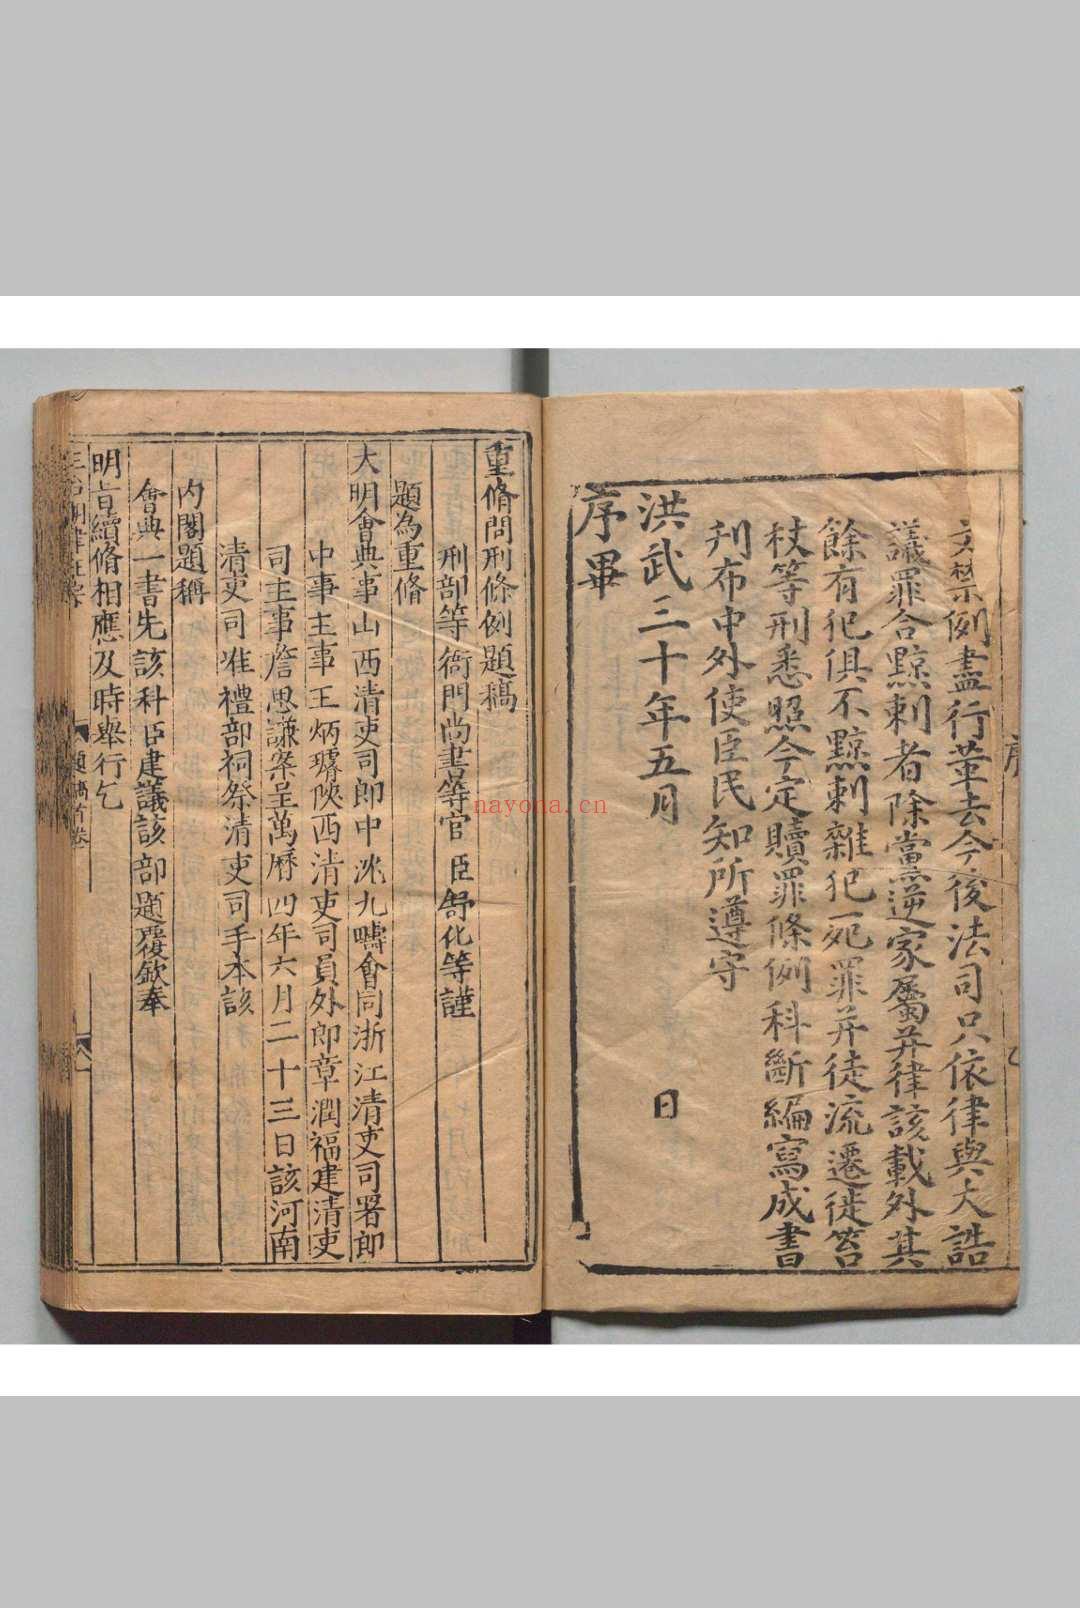 文禁例盡行革去今後法司只依律與大誥
議罪合黥刺者除黨逆家屬并律該載外其
餘有犯俱不黥刺雜犯死罪并徒流遷徙笞
杖等刑悉照今定贖罪條例科斷編寫成書
刋布中外使臣民知所遵守
洪武三十年五月 日
序畢
重脩問刑條例題稿
刑部等衙門尚書等官臣舒化等謹
題為重脩
大明會典事山西清吏司郎中洪九疇會同浙江清吏司署郎
中事主事王炳璿陝西清吏司員外郎章潤福建清吏
司主事詹思謙案呈萬曆四年六月二十三日該河南
清吏司准禮部祠祭清吏司手本該
內閣題稱
會典一書先該科臣建議該部題覆欽奉
明旨續脩相應及時舉行乞
題稿首卷
nayona.cn